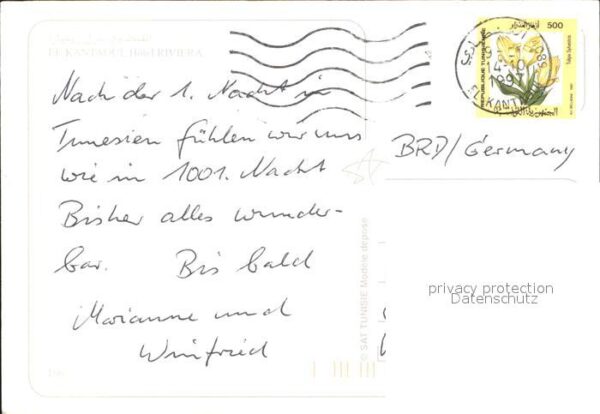 EL KANTAOUI, Hôtel RIVIERA
Nach der 1. Nacht in
Tunesien fühlen wir uns
wie in 1001. Nacht
Bisher alles wunder-
bar. Bis bald
Marianne und
Winfried
500
REPUBLIQUE TUNISIENNE
Tulipa Sylvestris
14-10
1997
BRD/Germany
© SAT TUNISIE Modèle déposé
privacy protection
Datenschutz